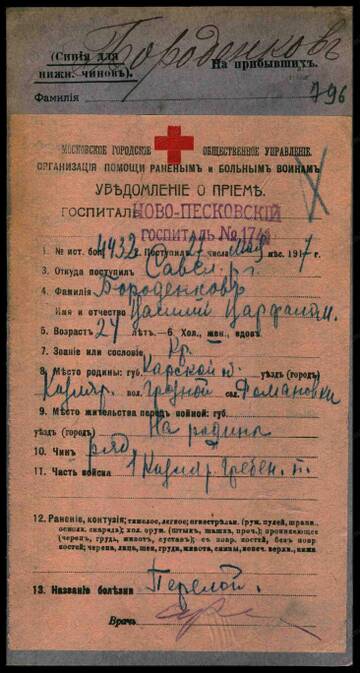 Бороденковъ
(Синія для нижн. чиновъ).
На прибывшихъ.
Фамилія
796
МОСКОВСКОЕ ГОРОДСКОЕ ОБЩЕСТВЕННОЕ УПРАВЛЕНІЕ.
ОРГАНИЗАЦІЯ ПОМОЩИ РАНЕНЫМЪ и БОЛЬНЫМЪ ВОИНАМЪ
УВѢДОМЛЕНІЕ О ПРІЕМѢ.
ГОСПИТАЛЬ НОВО-ПЕСКОВСКІЙ
ГОСПИТАЛЬ № 174
1. № ист. бол. 4432 2. Поступилъ 27 числа мая мѣс. 1917 г.
3. Откуда поступилъ Савел.
4. Фамилія Бороденковъ
Имя и отчество
5. Возрастъ 24 лѣтъ.—6. Хол., жен., вдовъ.
7. Званіе или сословіе Кр.
8. Мѣсто родины: губ. Карской о. уѣздъ (городъ)
вол. Грозной сел. Романовки
9. Мѣсто жительства передъ войной: губ.
уѣздъ (городъ) На родинѣ
10. Чинъ ряд.
11. Часть войска 1 Кизляр. Гребен. п.
12. Раненіе, контузія; тяжелое, легкое; огнестрѣльн. (руж. пулей, шрапн.,
осколк. снаряд); хол. оруж. (штыкъ, шашка, проч.); проникающее
(черепъ, грудь, животъ, суставъ); съ повр. костей, безъ повр.
костей; черепа, лица, шеи, груди, живота, спины, конеч. верхн., нижн.
13. Названіе болѣзни Перелой.
Врачъ